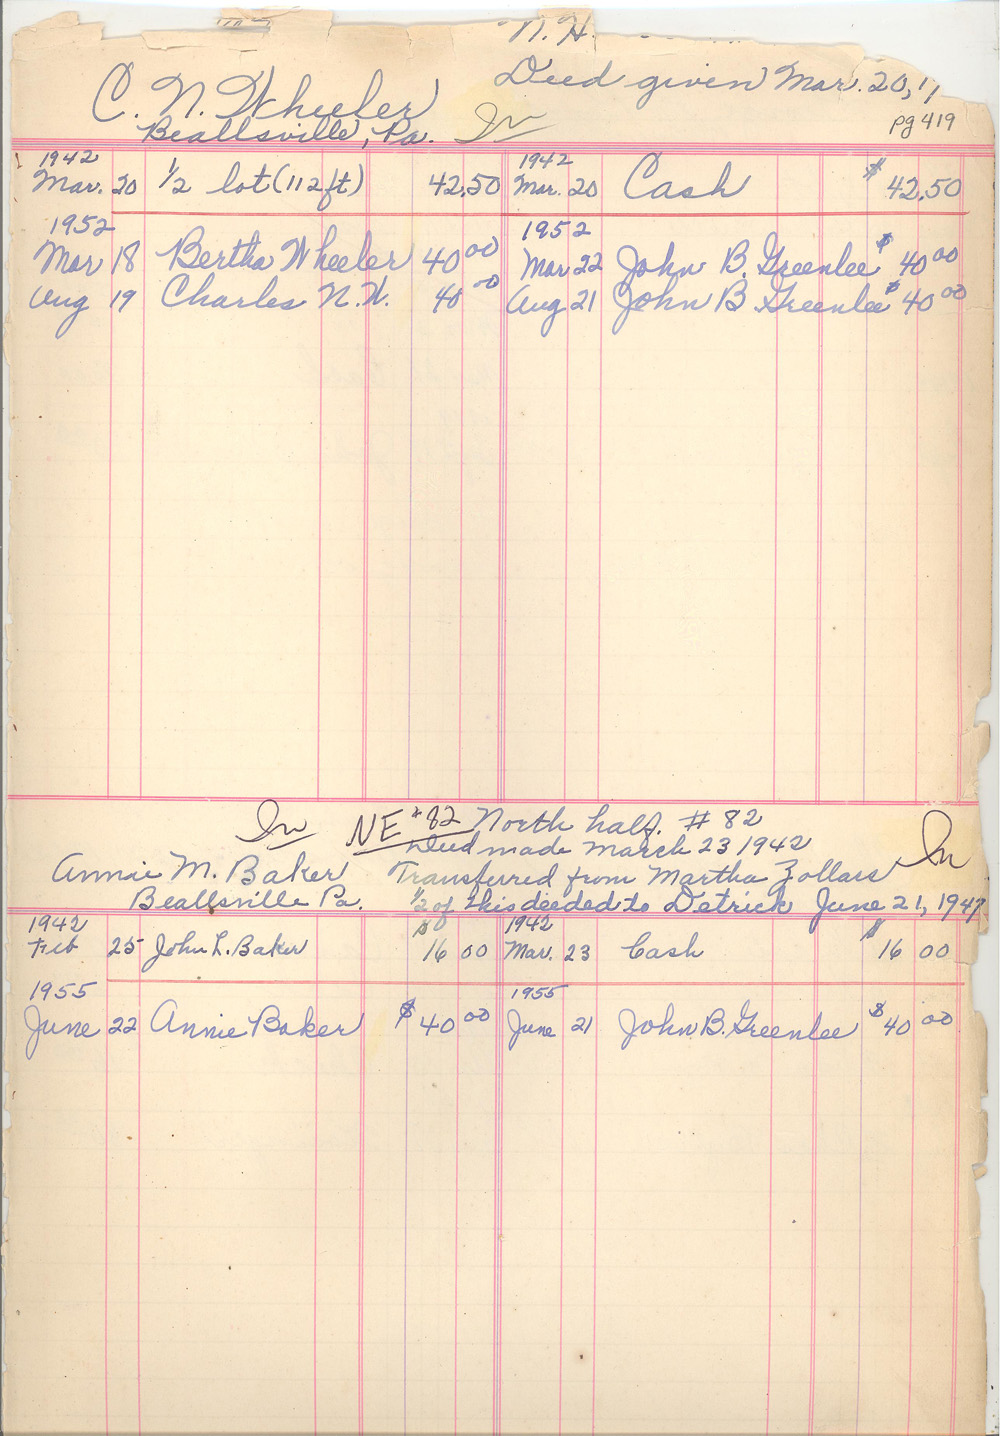 N. H.
C. N. Wheeler Deed given Mar. 20,
Beallsville, Pa. In pg 419
1942 1942
Mar. 20 1/2 lot (112 ft) 42.50 Mar. 20 Cash $ 42.50
1952 1952
Mar 18 Bertha Wheeler 40 00 Mar 22 John B. Greenlee $ 40 00
Aug 19 Charles N. W. 40 00 Aug 21 John B Greenlee $ 40 00
In NE #82 North half. # 82
Deed made March 23 1942 In
Annie M. Baker Transferred from Martha Zollars
Beallsville Pa. 1/2 of this deeded to Detrick June 21, 1947
1942 1942
Feb 25 John L. Baker 16 00 Mar. 23 Cash $ 16 00
1955 1955
June 22 Annie Baker $ 40 00 June 21 John B. Greenlee $ 40 00